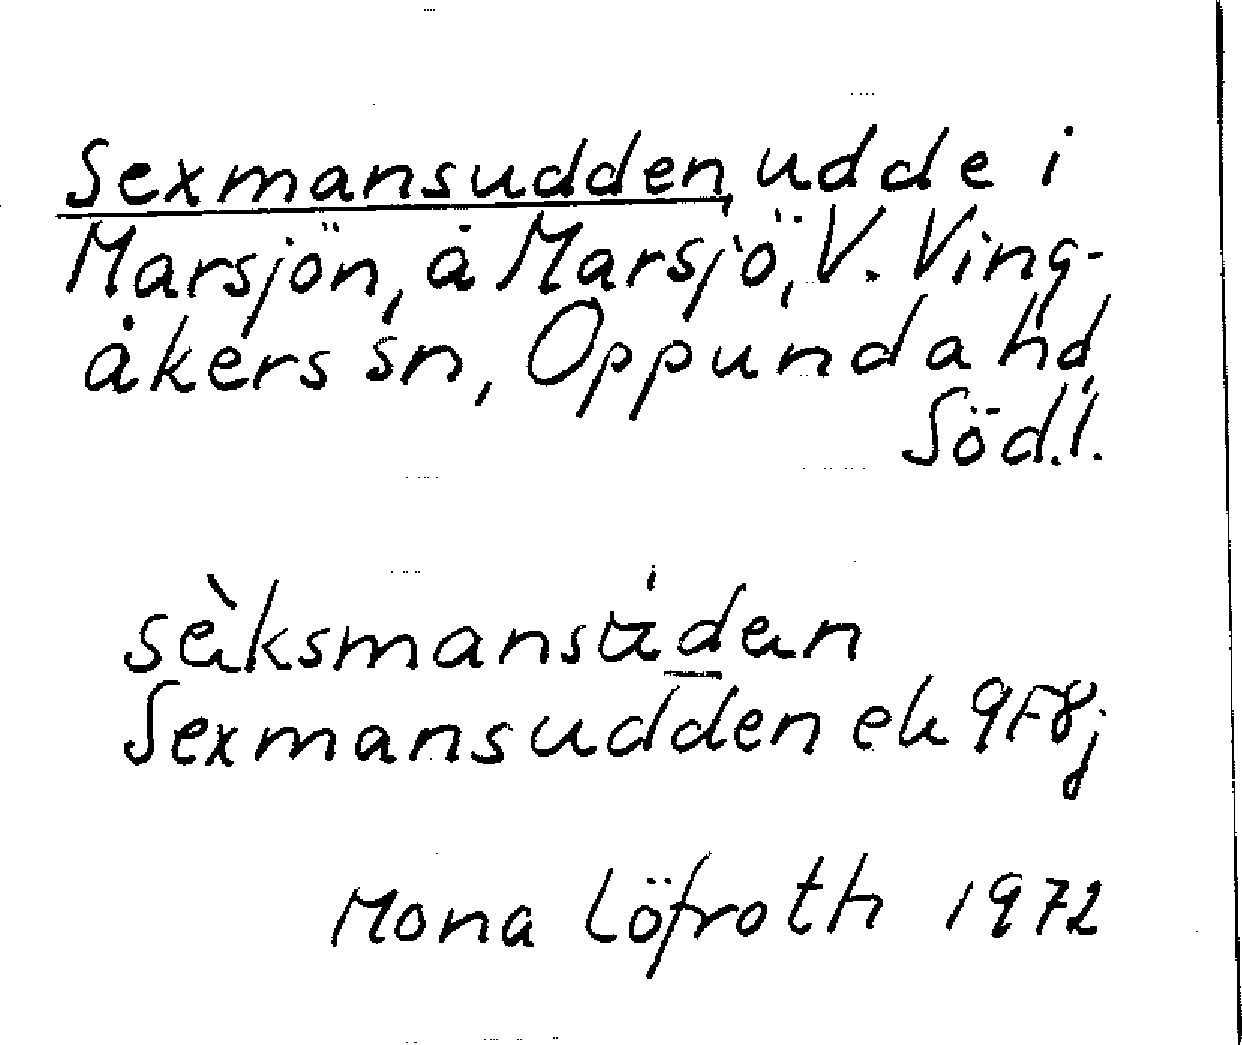 Sexmansudden, udde i
Marsjön, å Marsjö, V. Ving-
åkers sn, Oppunda hd,
Söd.l.
sèksmansu̇den
Sexmansudden ek 9F8j
Mona Löfroth 1972